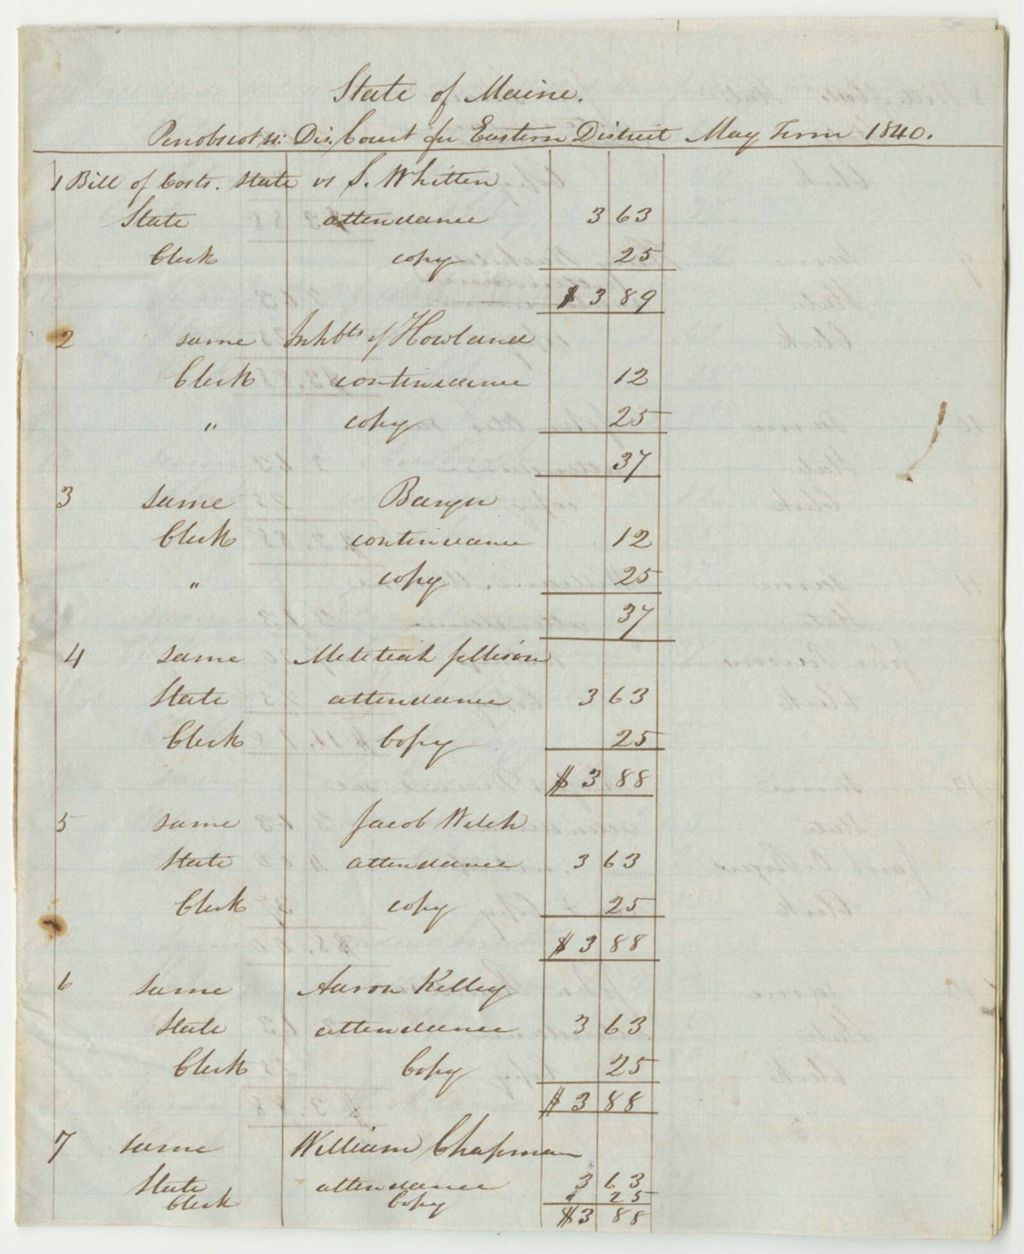 State of Maine.
Penobscot ss. Dis. Court for Eastern District May Term 1840.
1 Bill of Costs. State vs S. Whitten
State attendance 3 63
Clerk copy 25
$ 3 89
2 same Inhbts of Howland
Clerk continuance 12
" copy 25
37
3 same Bangor
Clerk continuance 12
" copy 25
37
4 same Meletiah Jillison
State attendance 3 63
Clerk Copy 25
$ 3 88
5 same Jacob Welch
State attendance 3 63
Clerk copy 25
$ 3 88
6 same Aaron Kelley
State attendance 3 63
Clerk Copy 25
$ 3 88
7 same William Chapman
State attendance 3 63
Clerk Copy 25
$3 88